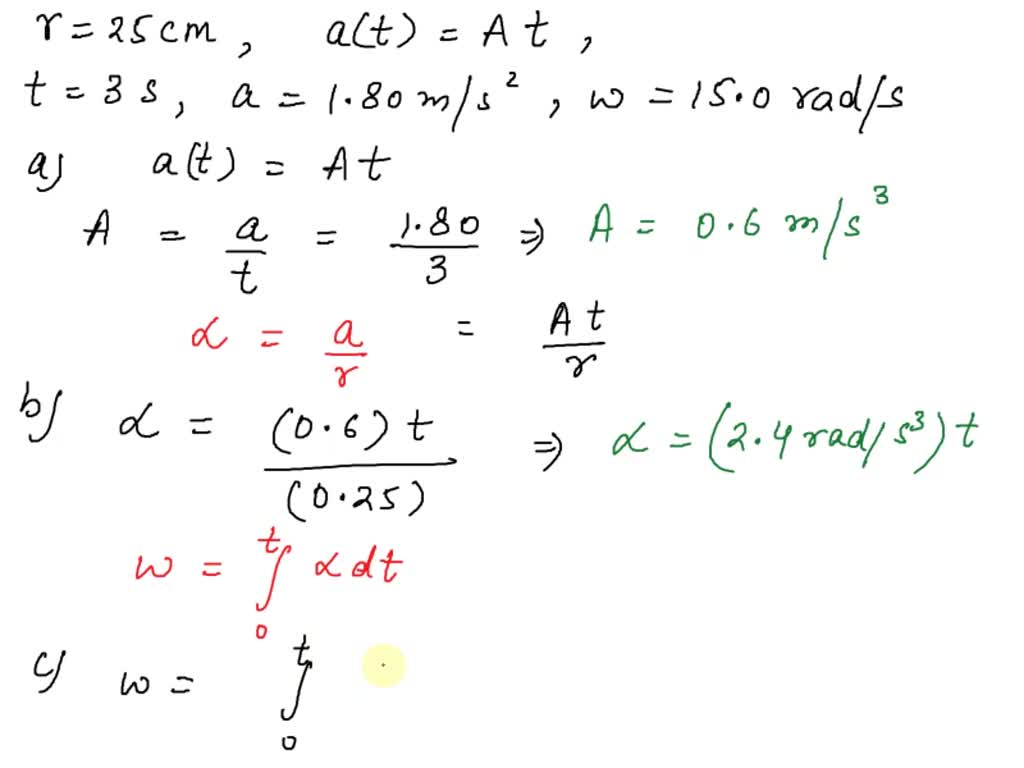 r = 25 cm, a(t) = A t,
t = 3 s, a = 1.80 m/s², w = 15.0 rad/s
a) a(t) = A t
A = a/t = 1.80/3 ⇒ A = 0.6 m/s³
α = a/r = At/r
b) α = (0.6) t/(0.25) ⇒ α = (2.4 rad/s³) t
w = ∫₀ᵗ α dt
c) w = ∫₀ᵗ